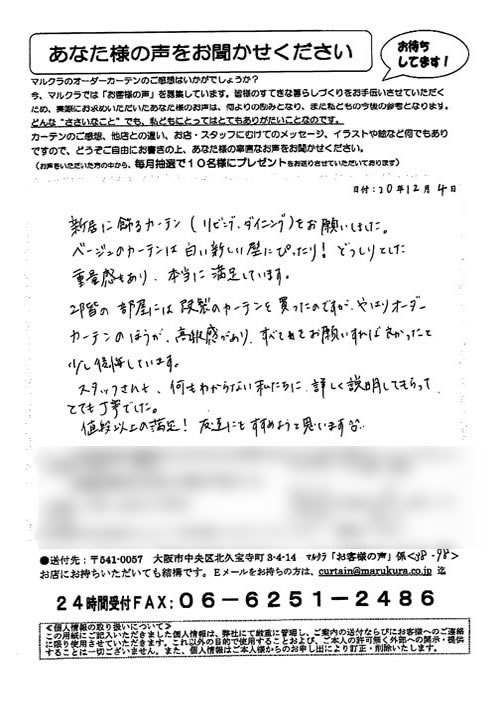 あなた様の声をお聞かせください
お待ち
してます!
マルクラのオーダーカーテンのご感想はいかがでしょうか?
今、マルクラでは「お客様の声」を募集しています。皆様のすてきな暮らしづくりをお手伝いさせていただく
ため、実際にお求めいただいたあなた様のお声は、何よりの励みとなり、また私どもの今後の参考となります。
どんな"ささいなこと"でも、私どもにとってはとてもありがたいことなのです。
カーテンのご感想、他店との違い、お店・スタッフにむけてのメッセージ、イラストや絵など何でもあり
ですので、どうぞご自由にお書きの上、あなた様の率直なお声をお聞かせください。
(お声をいただいた方の中から、毎月抽選で10名様にプレゼントをお送りさせていただいております)
日付:20年12月4日
新居に飾るカーテン(リビング、ダイニング)をお願いしました。
ベージュのカーテンは白い新しい壁にぴったり! どっしりとした
重量感もあり、本当に満足しています。
2階の部屋には既製のカーテンを買ったのですが、やはりオーダー
カーテンのほうが、高級感があり、すべてをお願いすれば良かったと
少し後悔しています。
スタッフさんも、何もわからない私たちに、詳しく説明してもらって
とても丁寧でした。
値段以上の満足! 友達にもすすめようと思います
●送付先:〒541-0057 大阪市中央区北久宝寺町3-4-14 マルクラ「お客様の声」係<y8-98>
お店にお持ちいただいても結構です。Eメールをお持ちの方は、curtain@marukura.co.jp 迄
24時間受付FAX:06-6251-2486
≪個人情報の取り扱いについて≫
この用紙にご記入いただきました個人情報は、弊社にて厳重に管理し、ご案内の送付ならびにお客様へのご連絡
に限り使用させていただきます。これ以外の目的で使用することおよび、ご本人の許可無く外部への開示・提供
することは一切ございません。また、個人情報はご本人様からのお申し出により訂正・削除いたします。